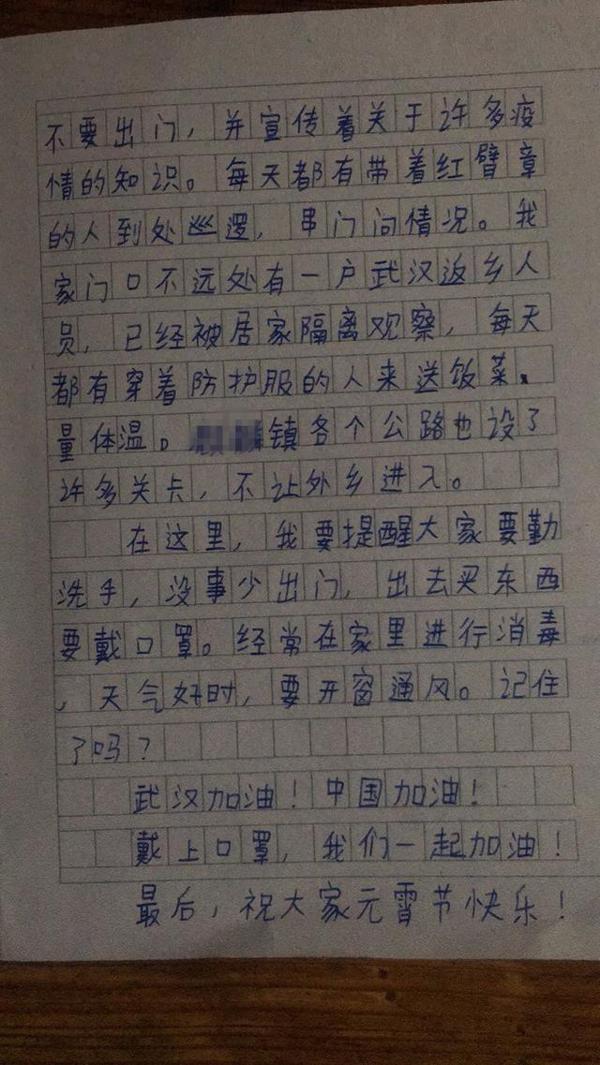 不要出门，并宣传着关于许多疫
情的知识。每天都有带着红臂章
的人到处巡逻，串门问情况。我
家门口不远处有一户武汉返乡人
员，已经被居家隔离观察，每天
都有穿着防护服的人来送饭菜、
量体温。镇各个公路也设了
许多关卡，不让外乡进入。
在这里，我要提醒大家要勤
洗手，没事少出门，出去买东西
要戴口罩。经常在家里进行消毒
，天气好时，要开窗通风。记住
了吗？
武汉加油！中国加油！
戴上口罩，我们一起加油！
最后，祝大家元宵节快乐！